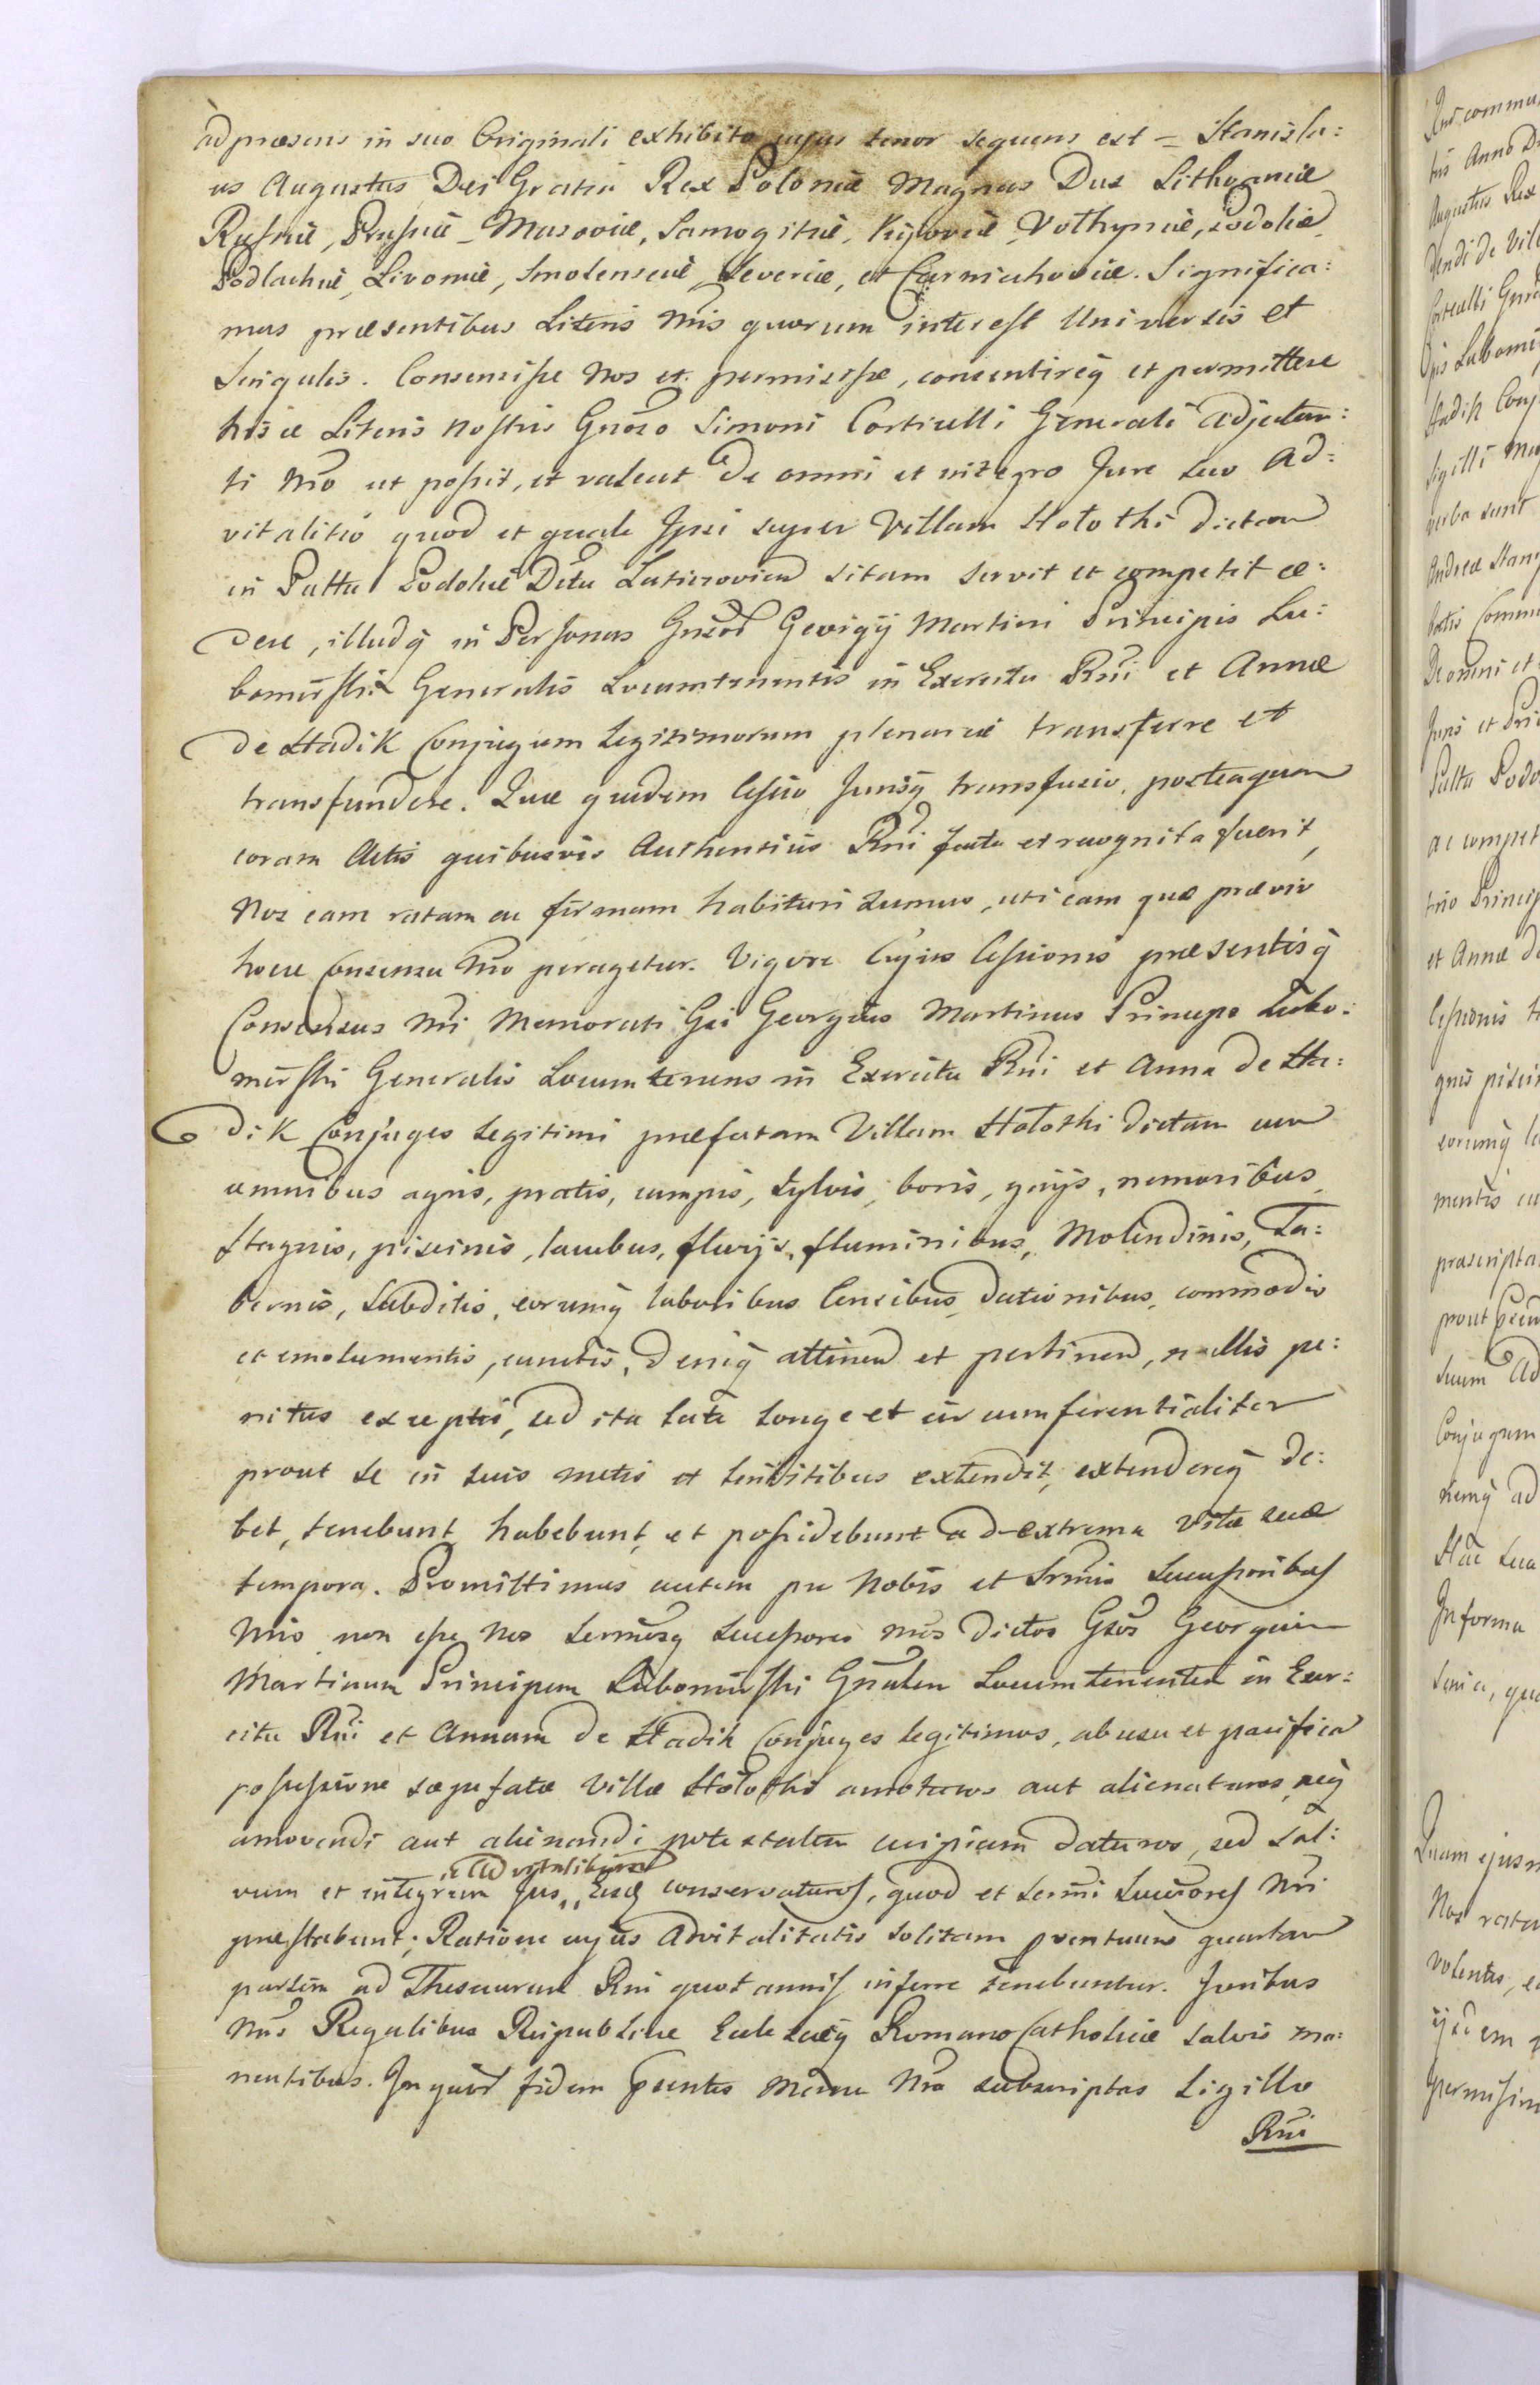 ad praesens in suo Originali exhibito cujus tenor sequens est = Stanisla:
us Augustus Dei Gratia Rex Poloniæ Magnus Dux Lithvaniæ
Russiæ, Prussiæ, Masoviæ, Samogitiæ, Kijoviæ, Volhyniæ, Podoliæ,
Podlachiæ, Livoniæ, Smolensciæ, Severiæ, et Czerniechoviæ. Significa:
mus præsentibus Literis Nris quorum interest Universis et
Singulis. Consensisse Nos et permisisse, consentireq et permittere
hisce Literis nostris Gnoso Simoni Corticelli Generali Adjutan:
ti Nro ut possit, et valeat de omni et integro Jure suo Ad:
vitalitio quod et quale Ipsi super Villam Holothi dictam
in Pattu Podoliæ Dttu Laticzovien sitam servit et competit ce:
dere, illudq in Personas Gnsor Georgij Martini Principis Lu:
bomirski Generalis Locumtenentis in Exercitu Rni et Annæ
de Hadik Conjugum Legitimorum plenarie transferre et
transfundere. Quæ quidem Cessio Jurisq transfusio, posteaquam
coram Actis quibusvis Authenticis Rni facta et recognita fuerit,
Nos eam ratam ac firmam habituri sumus, uti eam quæ prævio
hocce Consensu Nro peragetur. Vigore Cujus Cessionis præsentisq
Consensus Nri Memorati Gsi Georgius Martinus Princeps Lubo:
mirski Generalis Locumtenens in Exercitu Rni et Anna de Ha:
dik Conjuges legitimi præfatam Villam Holothi dictam cum
omnibus agris, pratis, campis, sylvis, boris, gajis, nemoribus,
stagnis, piscinis, lacubus, fluvijs, fluminibus, Molendinis, Ta:
bernis, Subditis, eorumq laboribus Censibus, dationibus, commodis
et emolumentis, cunctis, deniq attinen et pertinen, nullis pe:
nitus exceptis, sed ita late longe et circumferentialiter
prout se in suis metis et limitibus extendit, extendereq de:
bet, tenebunt, habebunt, et possidebunt ad extrema vitæ suæ
tempora. Promittimus autem pro Nobis et Srmis Successoribus
Nris non esse Nos Sermosq Successores nros dictos Gsos Georgium
Martinum Principem Lubomirski Gnralem Locumtenentem in Exer:
citu Rni et Annam de Hadik Conjuges legitimos, ab usu et pacifica
possessione sæpefatæ Villæ Holothi amoturos aut alienaturos, neq
amovendi aut alienandi potestatem cuipiam daturos, sed sal:
ie Advitalitium
vum et integrum Jus Eisq conservaturos, quod et Sermi Succores Nri
præstabunt; Ratione cujus Advitalitatis solitam proventuum quartam
partem ad Thesaurum Rni quot annis inferre tenebuntur. Juribus
Nris Regalibus Reipublicæ Ecclesiæq Romano Catholicæ salvis ma:
nentibus. In quor fidem Psentes Manu Nra subscriptas Sigillo
Rni